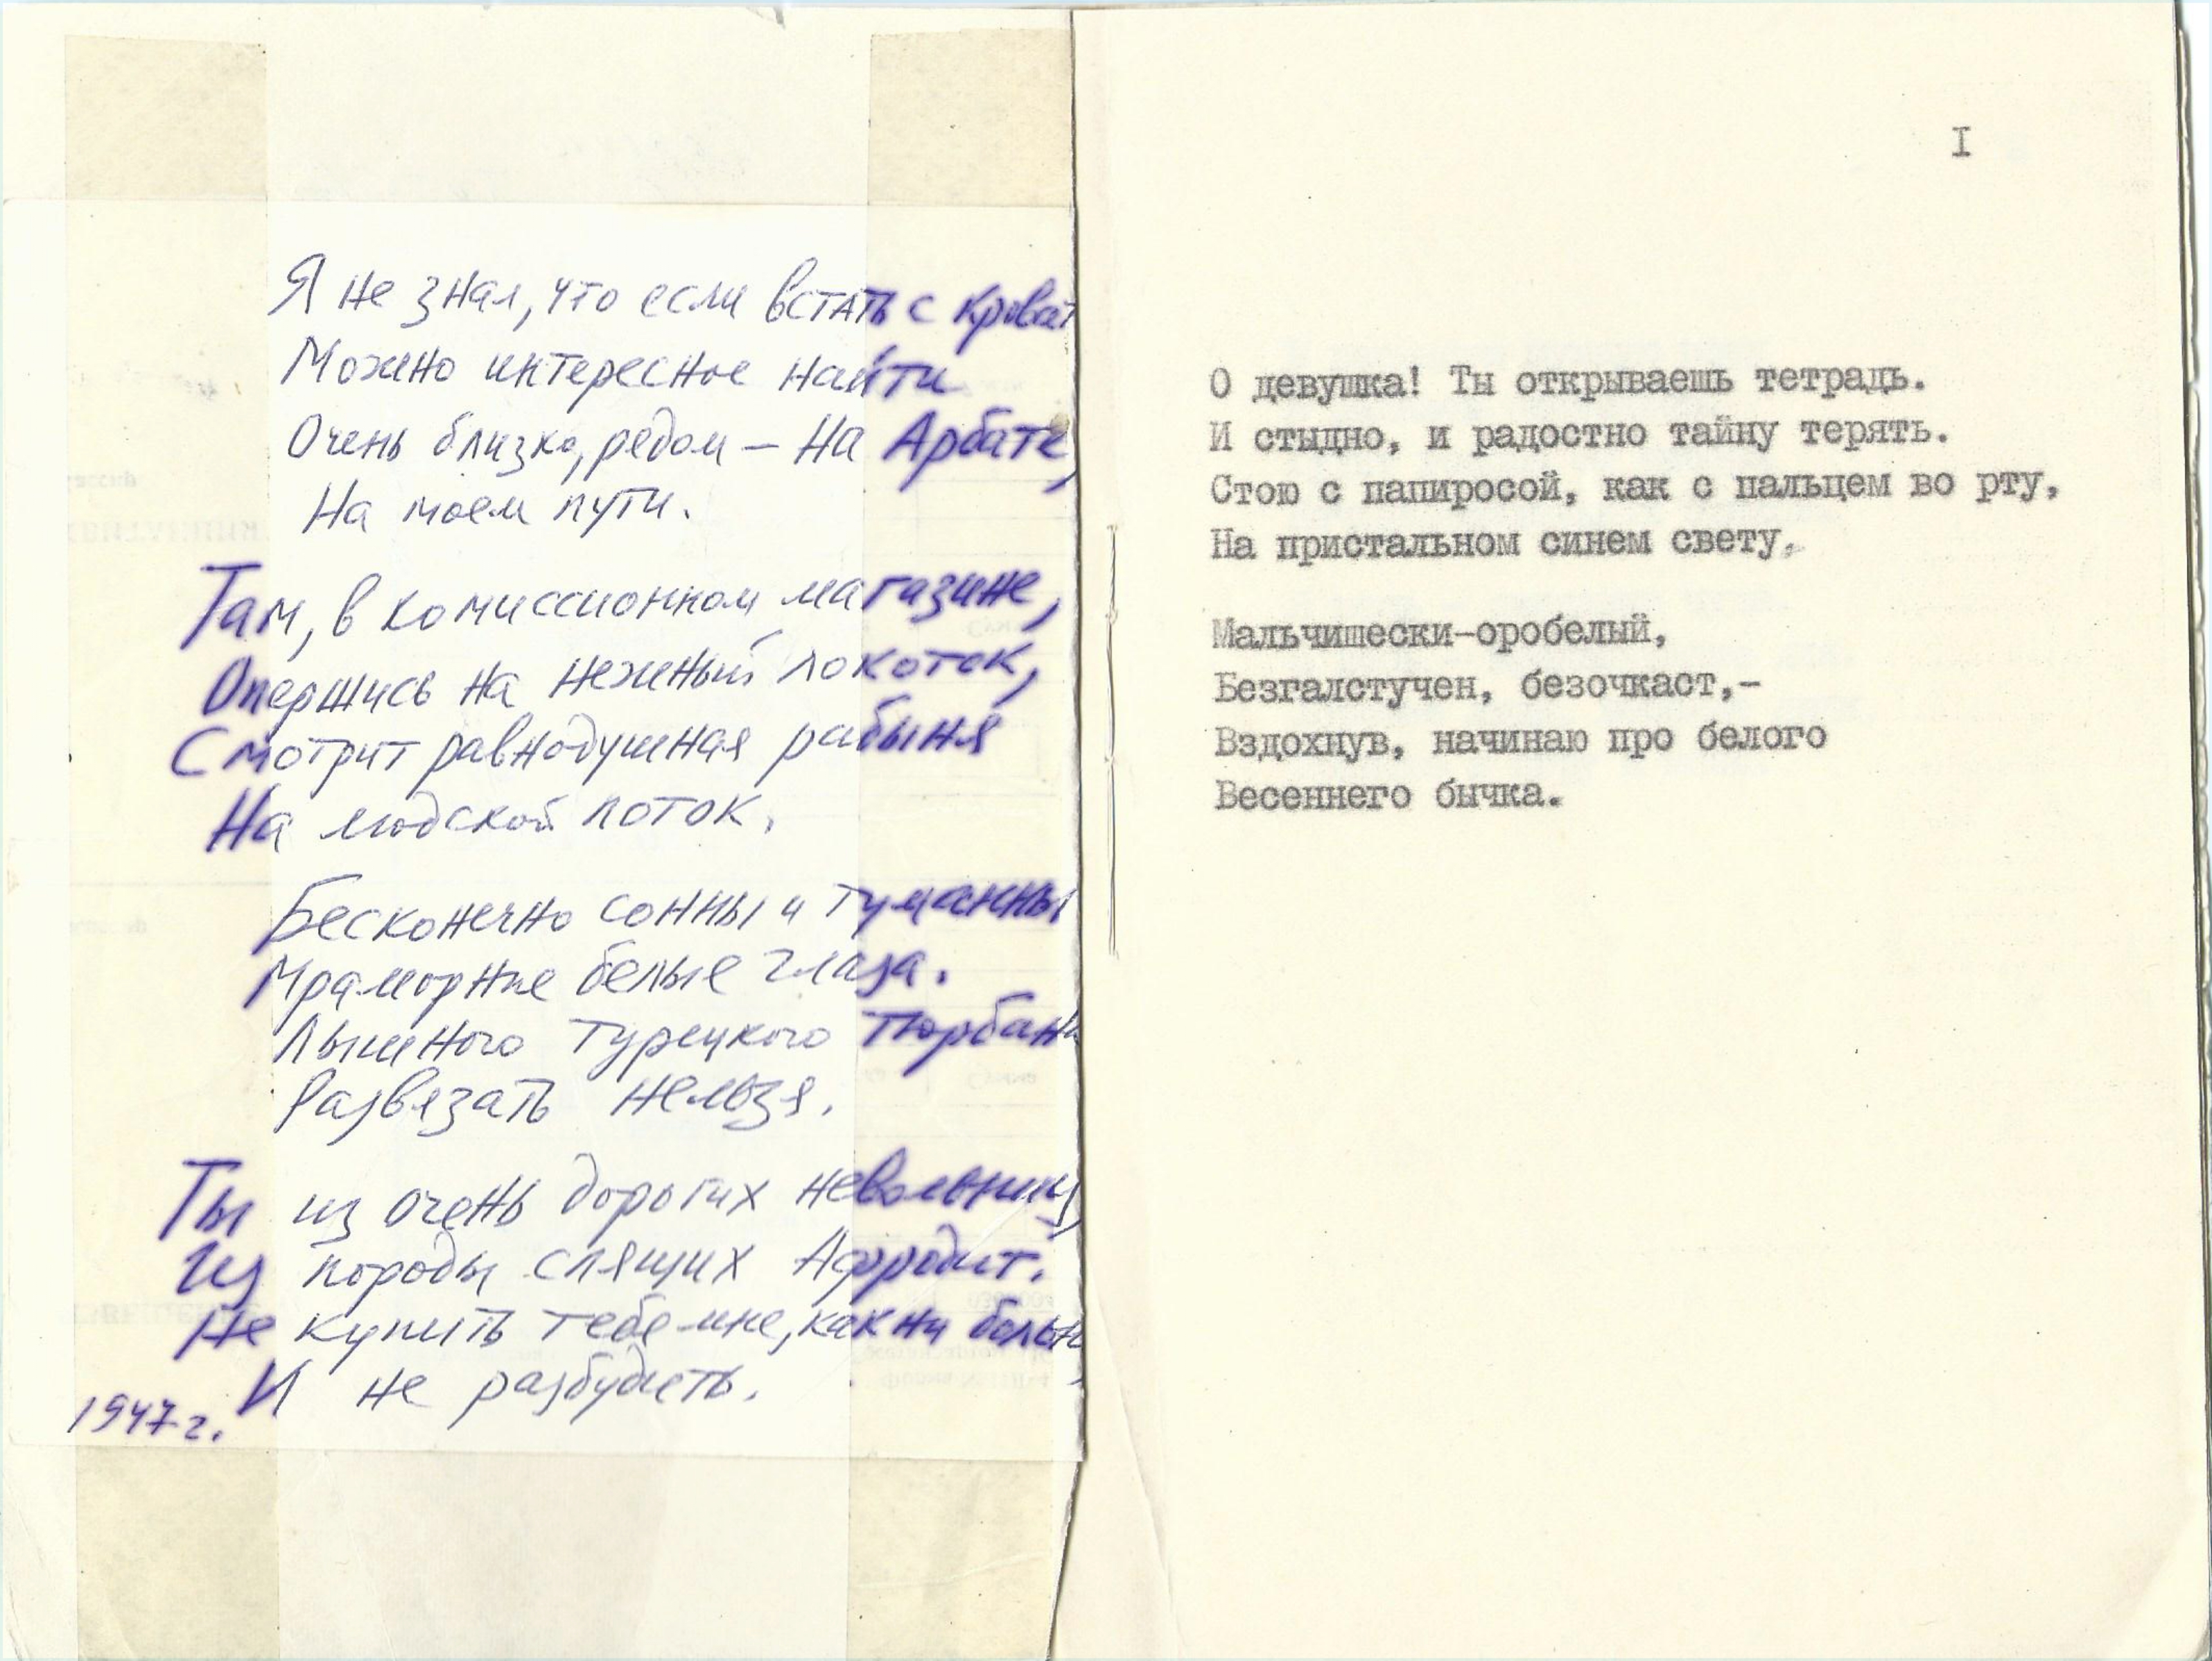 Я не знал, что если встать с кроват
Можно интересное найти
Очень близко, рядом – на Арбате,
На моем пути.
Там, в комиссионном магазине,
Опершись на нежный локоток,
Смотрит равнодушная рабыня
На людской поток.
Бесконечно сонны и туманны
Мраморные белые глаза.
Пышного турецкого тюрбана
Развязать нельзя.
Ты из очень дорогих невольниц
Из породы спящих Афродит.
Не купить тебя мне, как ни больн
И не разбудить.
1947 г.
I
О девушка! Ты открываешь тетрадь.
И стыдно, и радостно тайну терять.
Стою с папиросой, как с пальцем во рту,
На пристальном синем свету.
Мальчишески-оробелый,
Безгалстучен, безочкаст,-
Вздохнув, начинаю про белого
Весеннего бычка.